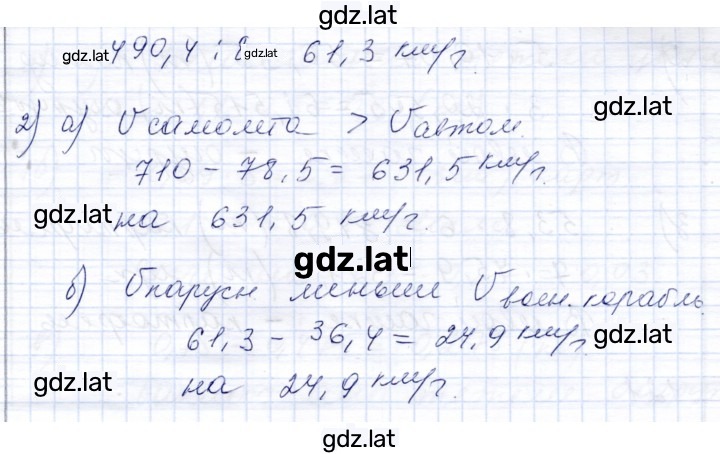 gdz.lat
gdz.lat 490,4 : 8 gdz.lat 61,3 км/г.
gdz.lat
2) а) Vсамолёта > Vавтом.
710 - 78,5 = 631,5 км/г.
gdz.lat на 631,5 км/г. gdz.lat
gdz.lat
б) Vпарусн меньше Vвоен. корабль
61,3 - 36,4 = 24,9 км/г. gdz.lat
gdz.lat на 24,9 км/г.
gdz.lat